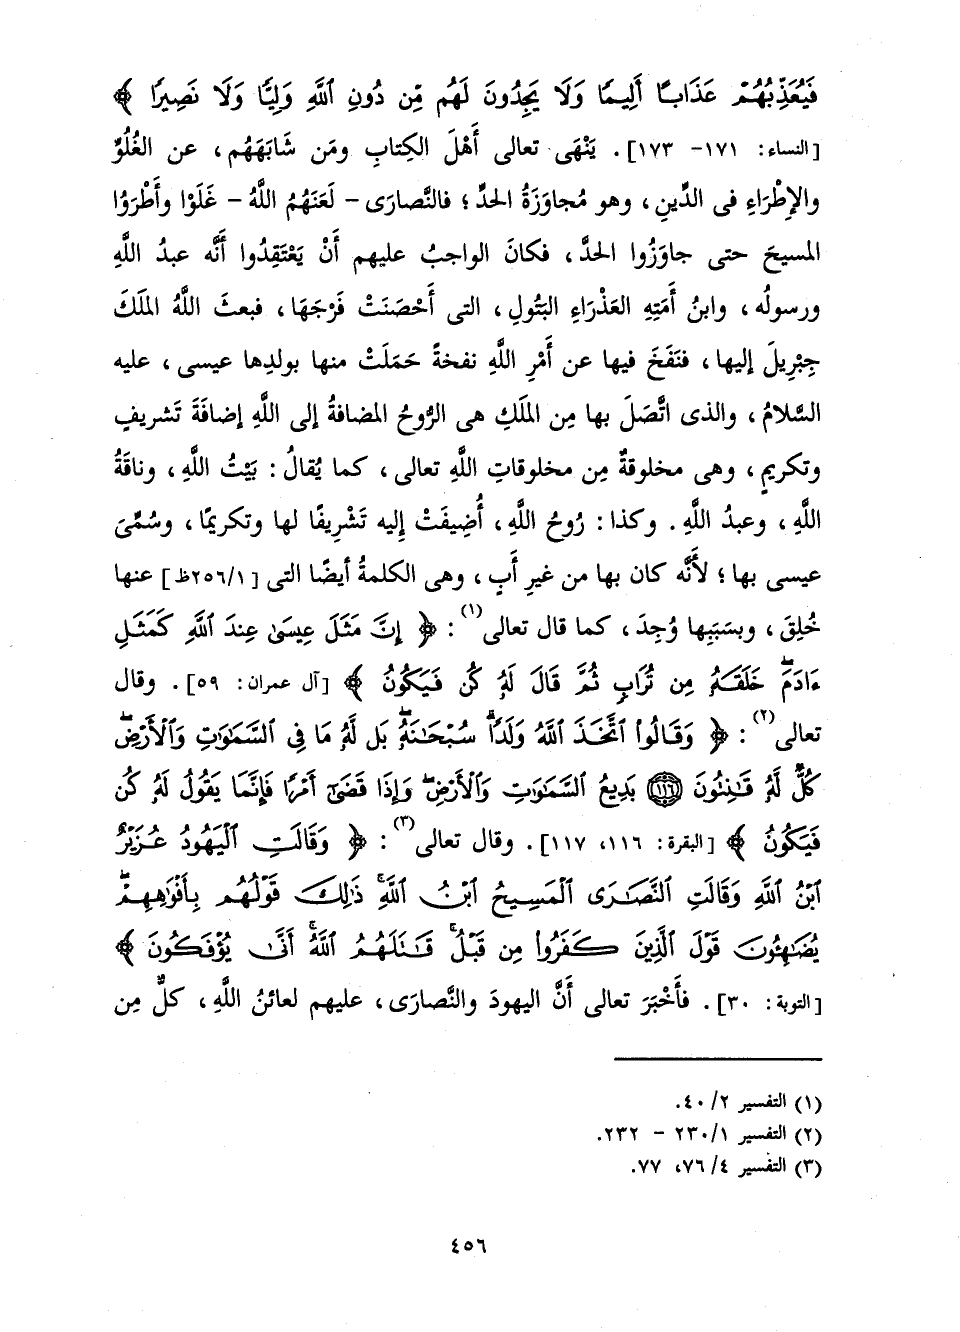 فَيُعَذِّبُهُمْ عَذَابًا أَلِيمًا وَلَا يَجِدُونَ لَهُم مِّن دُونِ ٱللَّهِ وَلِيًّا وَلَا نَصِيرًا ﴾
[النساء: ١٧١- ١٧٣]. يَنْهَى تعالى أَهْلَ الكِتابِ ومَن شَابَهَهُم، عن الغُلُوِّ
والإِطْرَاءِ فى الدِّينِ، وهو مُجاوَزَةُ الحدِّ؛ فالنَّصارَى - لَعَنَهُمُ اللَّهُ - غَلَوْا وأَطْرَوُا
المسيحَ حتى جاوَزُوا الحدَّ، فكانَ الواجبُ عليهم أَنْ يَعْتَقِدُوا أنَّه عبدُ اللَّهِ
ورسولُه، وابنُ أَمَتِهِ العَذْرَاءِ البَتُولِ، التى أَحْصَنَتْ فَرْجَهَا، فبعثَ اللَّهُ الملَكَ
جِبْرِيلَ إليها، فنَفَخَ فيها عن أَمْرِ اللَّهِ نفخةً حَمَلَتْ منها بولدِها عيسى، عليه
السَّلامُ، والذى اتَّصَلَ بها مِن الملَكِ هى الرُّوحُ المضافةُ إلى اللَّهِ إضافَةَ تَشريفٍ
وتكريمٍ، وهى مخلوقةٌ مِن مخلوقاتِ اللَّهِ تعالى، كما يُقالُ: بَيْتُ اللَّهِ، وناقَةُ
اللَّهِ، وعبدُ اللَّهِ. وكذا: رُوحُ اللَّهِ، أُضِيفَتْ إليه تَشْرِيفًا لها وتكريمًا، وسُمِّىَ
عيسى بها؛ لأنَّه كان بها من غيرِ أَبٍ، وهى الكلمةُ أيضًا التى [٢٥٦/١ظ] عنها
خُلِقَ، وبسَبَبِها وُجِدَ، كما قال تعالى(١): ﴿ إِنَّ مَثَلَ عِيسَىٰ عِندَ ٱللَّهِ كَمَثَلِ
ءَادَمَۖ خَلَقَهُۥ مِن تُرَابٍ ثُمَّ قَالَ لَهُۥ كُن فَيَكُونُ ﴾ [آل عمران: ٥٩]. وقال
تعالى(٢): ﴿ وَقَالُوا۟ ٱتَّخَذَ ٱللَّهُ وَلَدًاۗ سُبْحَـٰنَهُۥۖ بَل لَّهُۥ مَا فِى ٱلسَّمَـٰوَٰتِ وَٱلْأَرْضِۖ
كُلٌّ لَّهُۥ قَـٰنِتُونَ ١١٦ بَدِيعُ ٱلسَّمَـٰوَٰتِ وَٱلْأَرْضِۖ وَإِذَا قَضَىٰٓ أَمْرًا فَإِنَّمَا يَقُولُ لَهُۥ كُن
فَيَكُونُ ﴾ [البقرة: ١١٦، ١١٧]. وقال تعالى(٣): ﴿ وَقَالَتِ ٱلْيَهُودُ عُزَيْرٌ
ٱبْنُ ٱللَّهِ وَقَالَتِ ٱلنَّصَـٰرَى ٱلْمَسِيحُ ٱبْنُ ٱللَّهِۖ ذَٰلِكَ قَوْلُهُم بِأَفْوَٰهِهِمْۖ
يُضَـٰهِـُٔونَ قَوْلَ ٱلَّذِينَ كَفَرُوا۟ مِن قَبْلُۚ قَـٰتَلَهُمُ ٱللَّهُۚ أَنَّىٰ يُؤْفَكُونَ ﴾
[التوبة: ٣٠]. فأَخْبَرَ تعالى أنَّ اليهودَ والنَّصارَى، عليهم لعائنُ اللَّهِ، كلٌّ مِن
(١) التفسير ٢/ ٤٠.
(٢) التفسير ١/ ٢٣٠ - ٢٣٢.
(٣) التفسير ٤/ ٧٦، ٧٧.
٤٥٦